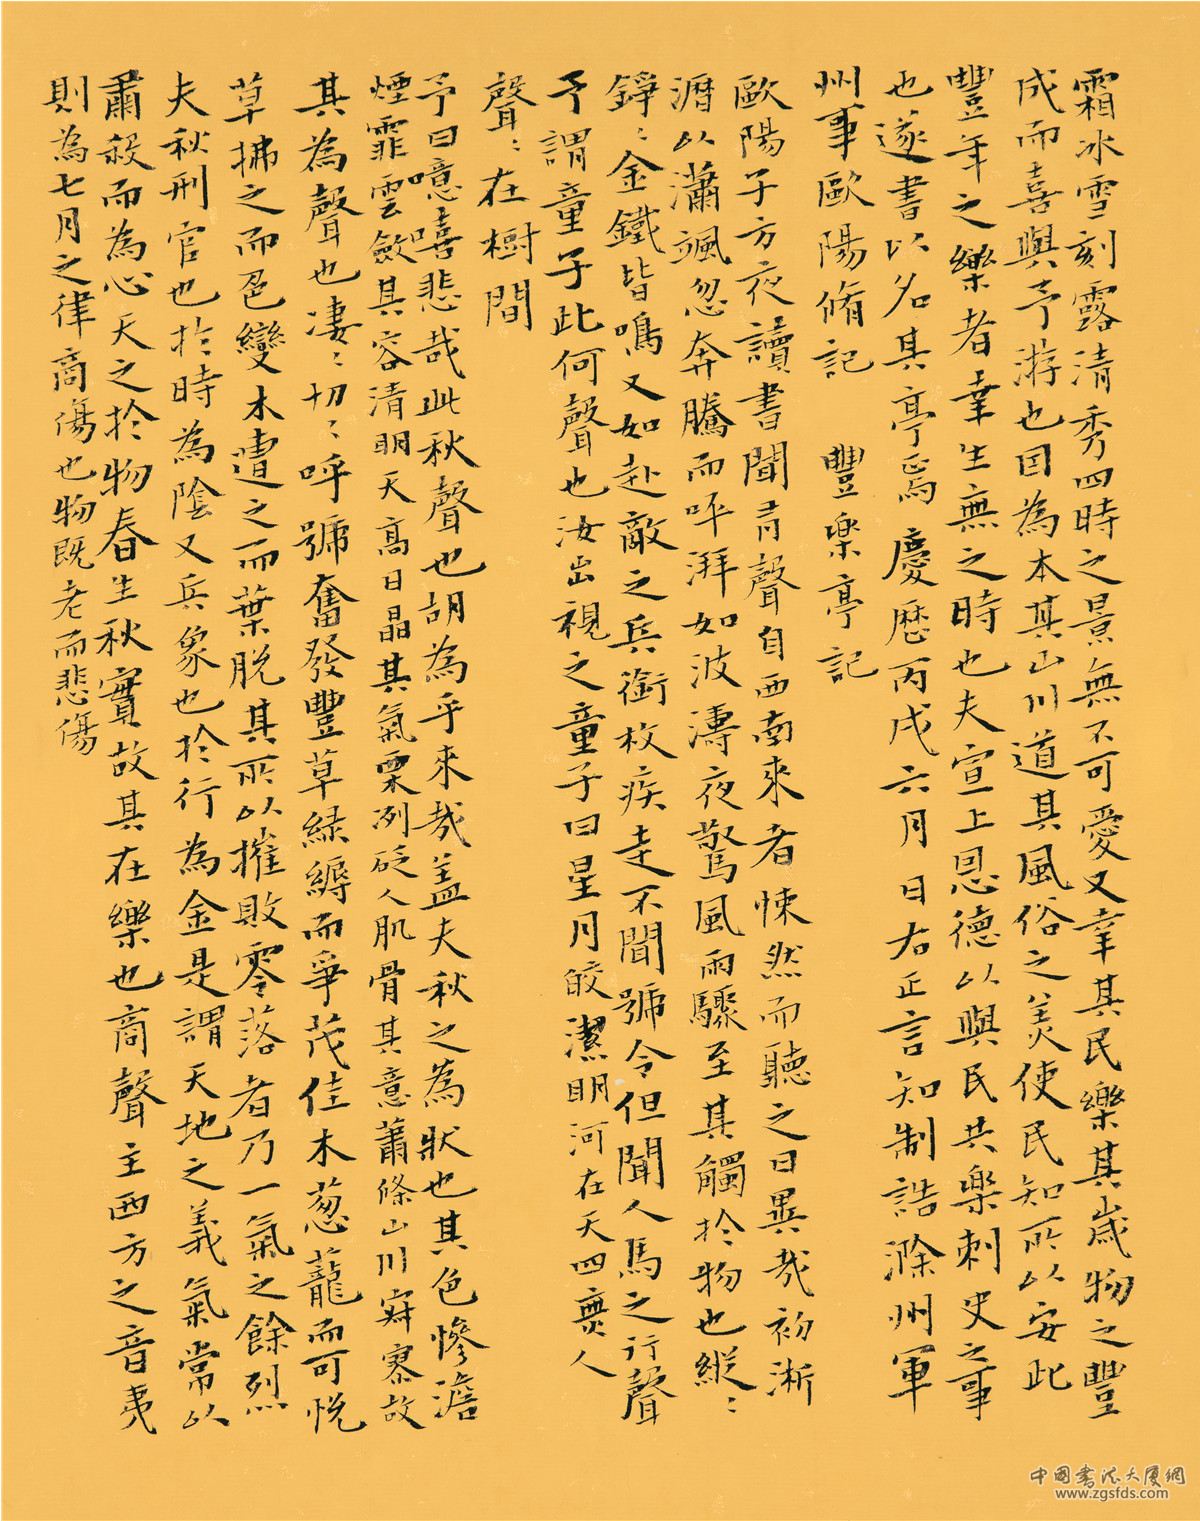 霜冰雪刻露清秀四時之景無不可愛又幸其民樂其歲物之豐
成而喜與予游也因為本其山川道其風俗之美使民知所以安此
豐年之樂者幸生無之時也夫宣上恩德以與民共樂刺史之事
也遂書以名其亭焉慶曆丙戌六月日右正言知制誥滁州軍
州事歐陽脩記 豐樂亭記
歐陽子方夜讀書聞有聲自西南來者悚然而聽之曰異哉初淅
瀝以瀟颯忽奔騰而呯湃如波濤夜驚風雨驟至其觸於物也縱:
錚:金鐵皆鳴又如赴敵之兵銜枚疾走不聞號令但聞人馬之行聲
予謂童子此何聲也汝出視之童子曰星月皎潔明河在天四無人
聲:在樹間
予曰噫嘻悲哉此秋聲也胡為乎來哉蓋夫秋之為狀也其色慘澹
煙霏雲斂其容清明天高日晶其氣栗冽砭人肌骨其意蕭條山川寂寥故
其為聲也淒:切:呼號奮發豐草綠縟而爭茂佳木蔥蘢而可悅
草拂之而色變木遭之而葉脫其所以摧敗零落者乃一氣之餘烈
夫秋刑官也於時為陰又兵象也於行為金是謂天地之義氣常以
肅殺而為心天之於物春生秋實故其在樂也商聲主西方之音夷
則為七月之律商傷也物既老而悲傷
中國書法大廈網
www.zgsfds.com